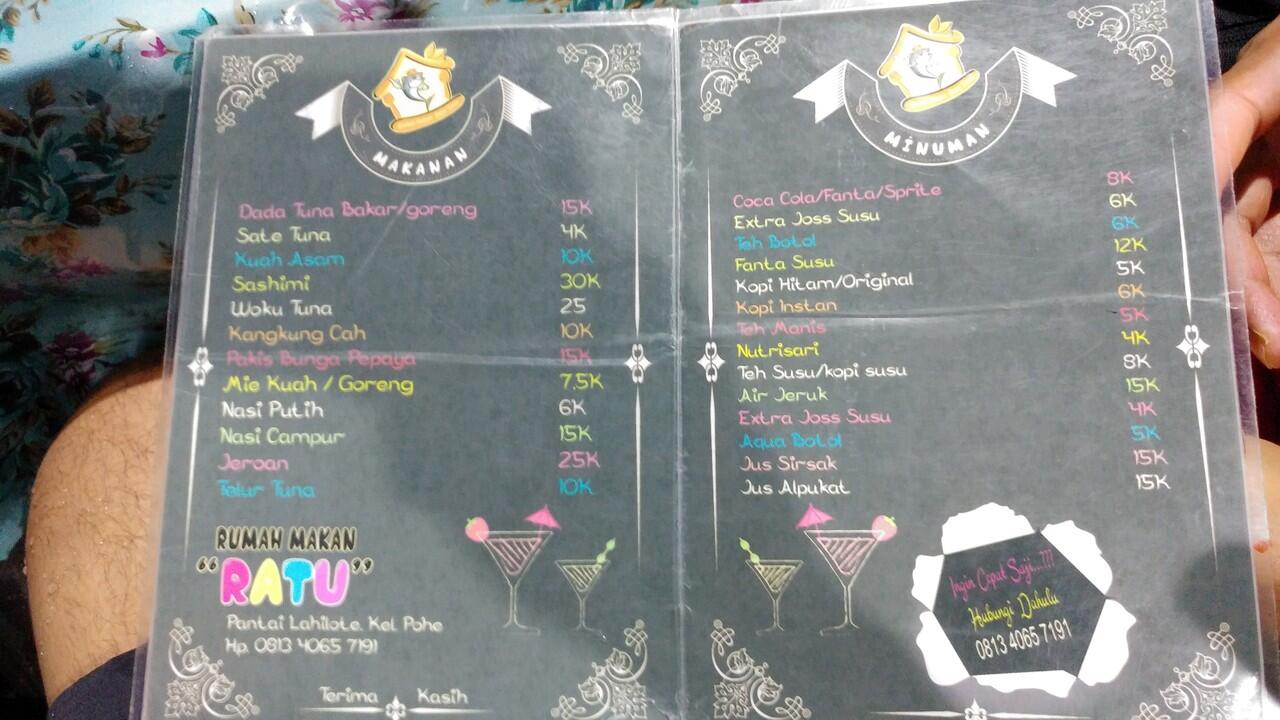 MAKANAN
Dada Tuna Bakar/goreng 15K
Sate Tuna 4K
Kuah Asam 10K
Sashimi 30K
Woku Tuna 25
Kangkung Cah 10K
Pakis Bunga Pepaya 15K
Mie Kuah / Goreng 7.5K
Nasi Putih 6K
Nasi Campur 15K
Jeroan 25K
Telur Tuna 10K
RUMAH MAKAN
"RATU"
Pantai Lahilote. Kel. Pohe
Hp. 0813 4065 7191
Terima Kasih
MINUMAN
Coca Cola/Fanta/Sprite 8K
Extra Joss Susu 6K
Teh Botol 6K
Fanta Susu 12K
Kopi Hitam/Original 5K
Kopi Instan 6K
Teh Manis 5K
Nutrisari 4K
Teh Susu/kopi susu 8K
Air Jeruk 15K
Extra Joss Susu 4K
Aqua Botol 5K
Jus Sirsak 15K
Jus Alpukat 15K
Ingin Cepat Saji...???
Hubungi Dahulu
0813 4065 7191